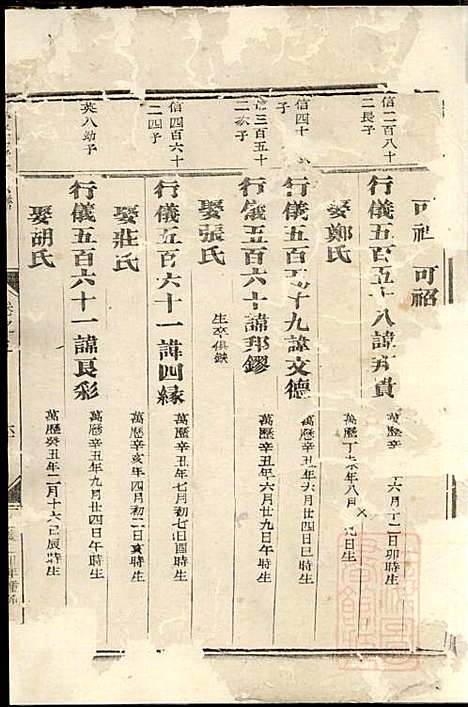 可祉 可祒
信二百八十
二長子
行儀五百五十八諱 貴
萬曆辛 六月十二日卯時生
娶鄭氏
萬曆丁未年八月 九日生
信四十
子
行儀五百五十九諱文德
萬曆辛丑年六月廿四日巳時生
信三百五十
二次子
行儀五百六十諱邦鏐
萬曆辛丑年六月廿九日午時生
娶張氏
生卒俱缺
信四百六十
二四子
行儀五百六十一諱四緣
萬曆辛丑年七月初七日酉時生
娶莊氏
萬曆辛亥年四月初二日亥時生
英八幼子
行儀五百六十一諱艮彩
萬曆辛丑年九月廿四日午時生
娶胡氏
萬曆癸丑年二月十六日辰時生